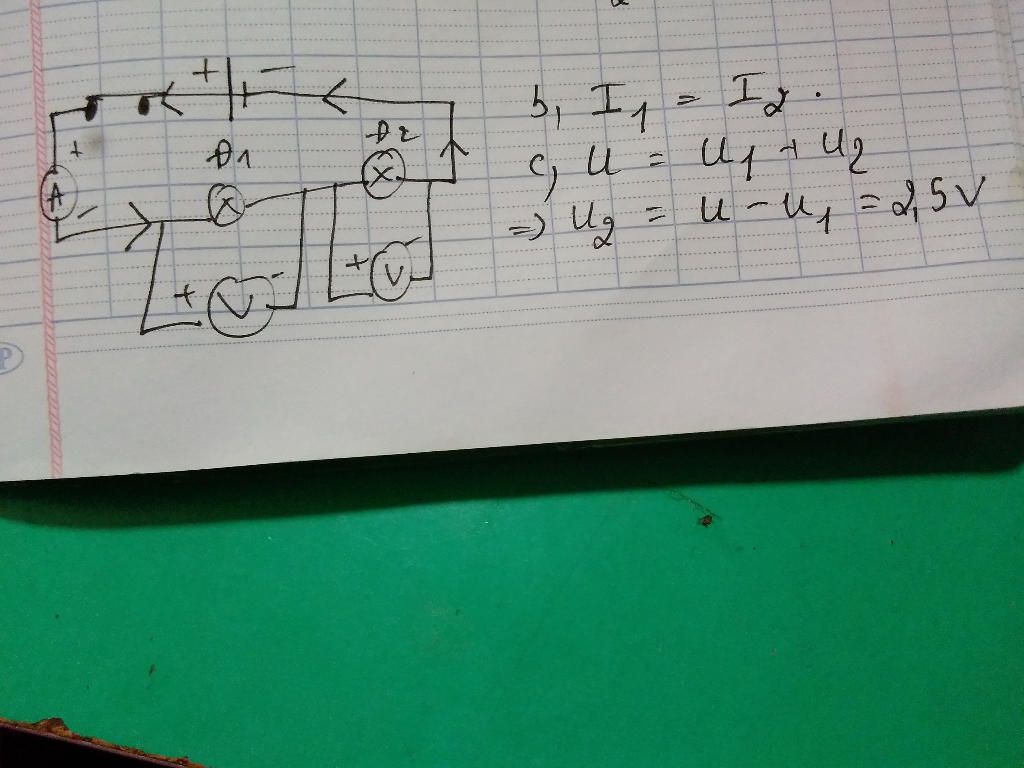 + −
Đ1
Đ2
+ A −
X
X
+ V −
+ V −
b, I1 = I2.
c, U = U1 + U2
=> U2 = U − U1 = 2,5V
P